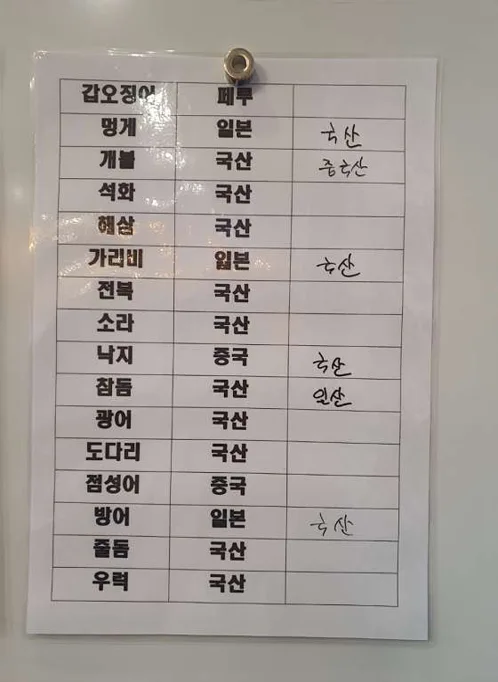 갑오징어 페루
멍게 일본 국산
개불 국산 중국산
석화 국산
해삼 국산
가리비 일본 국산
전복 국산
소라 국산
낙지 중국 국산
참돔 국산 일산
광어 국산
도다리 국산
점성어 중국
방어 일본 국산
줄돔 국산
우럭 국산